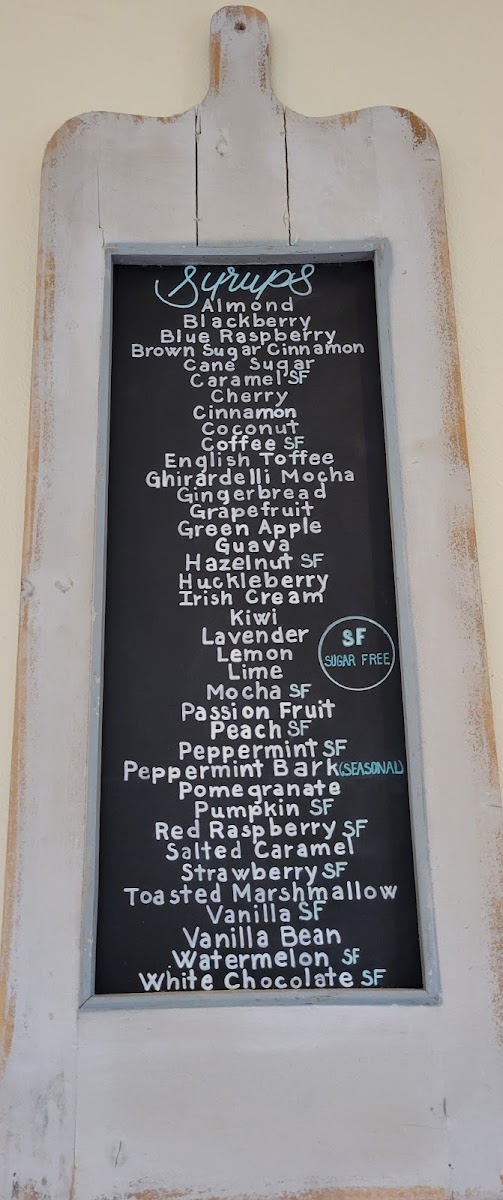 Syrups
Almond
Blackberry
Blue Raspberry
Brown Sugar Cinnamon
Cane Sugar
Caramel SF
Cherry
Cinnamon
Coconut
Coffee SF
English Toffee
Ghirardelli Mocha
Gingerbread
Grapefruit
Green Apple
Guava
Hazelnut SF
Huckleberry
Irish Cream
Kiwi
Lavender
Lemon
Lime
Mocha SF
Passion Fruit
Peach SF
Peppermint SF
Peppermint Bark (SEASONAL)
Pomegranate
Pumpkin SF
Red Raspberry SF
Salted Caramel
Strawberry SF
Toasted Marshmallow
Vanilla SF
Vanilla Bean
Watermelon SF
White Chocolate SF
SF
SUGAR FREE